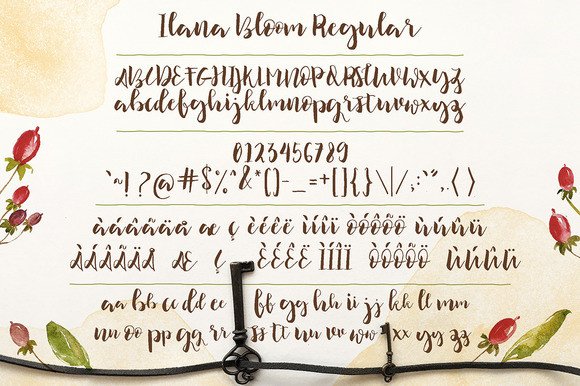 Ilana Bloom Regular
ABCDEFGHIJKLMNOPQRSTUVWXYZ
abcdefghijklmnopqrstuvwxyz
0123456789
`~!?@#$%^&*()-_=+[]{}\|/,;:'".,<>
àáâãäå æ ç èéêë ìíîï òóôõö ùúûü
ÀÁÂÃÄÅ Æ Ç ÈÉÊË ÌÍÎÏ ÒÓÔÕÖ ÙÚÛÜ
aa bb cc dd ee ff gg hh ii jj kk ll mm
nn oo pp qq rr ss tt uu vv ww xx yy zz